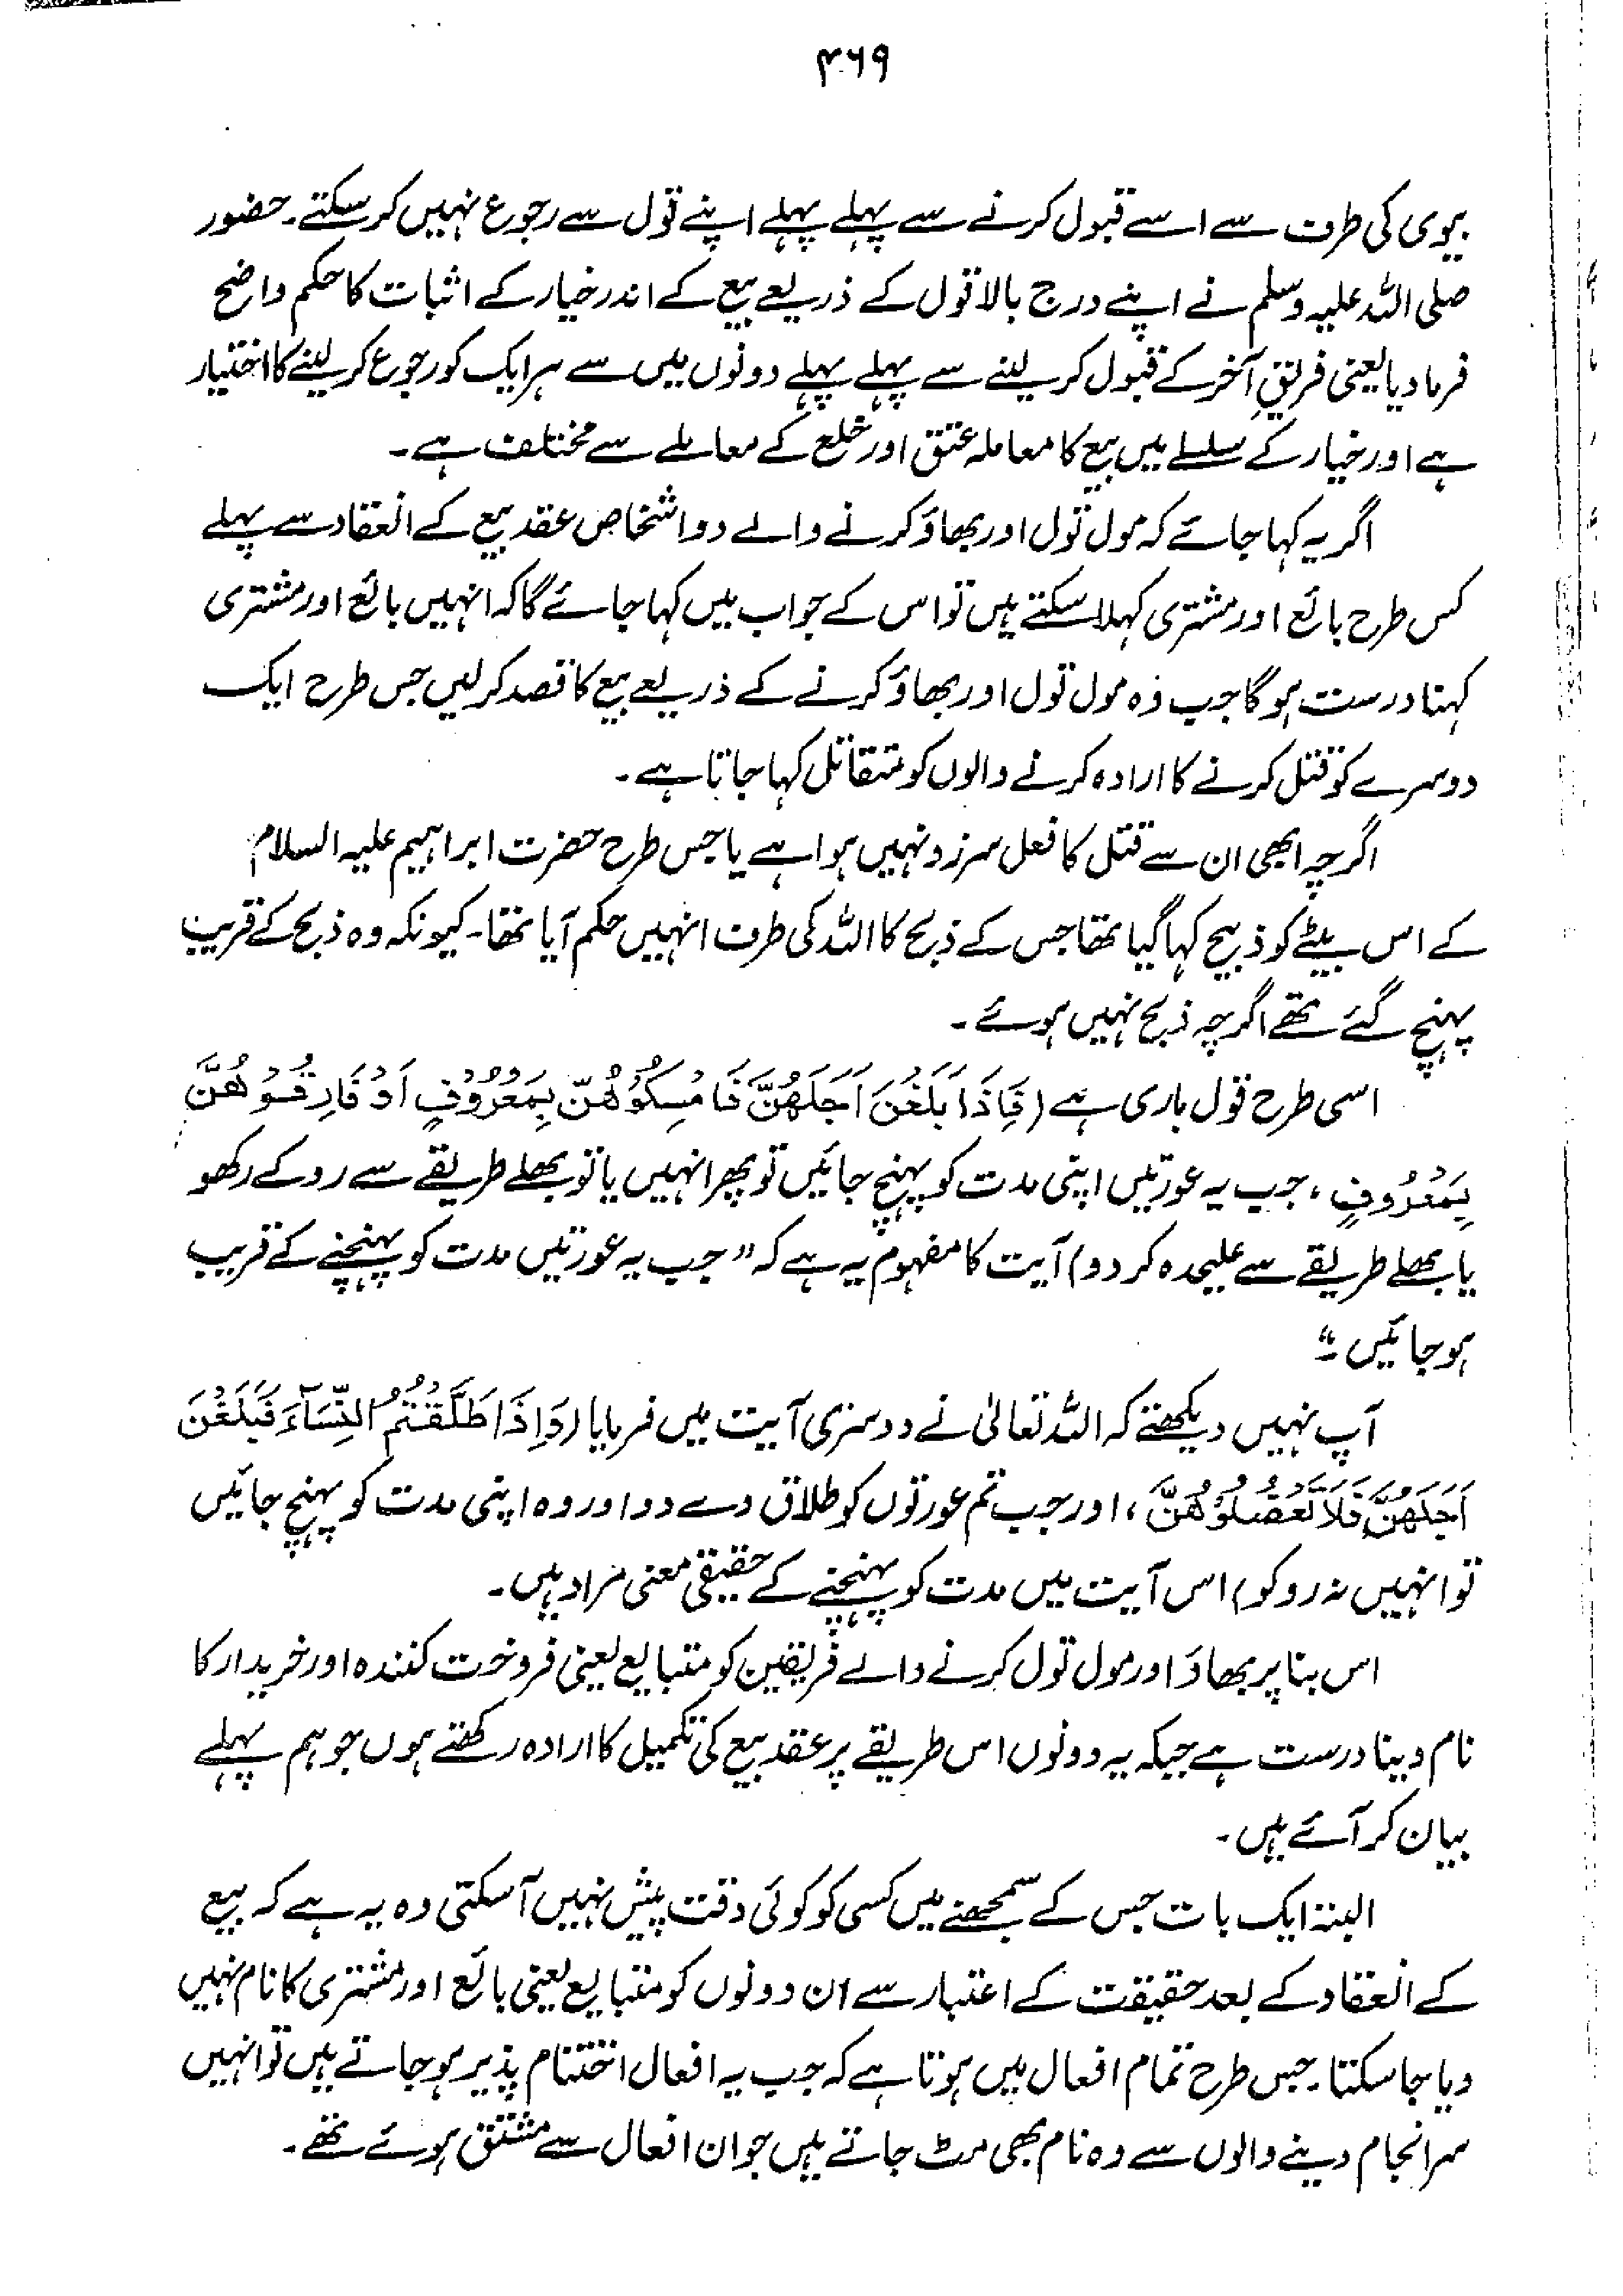 ۴۶۹
بیوی کی طرف سے اسے قبول کرنے سے پہلے پہلے اپنے قول سے رجوع نہیں کرسکتے۔ حضور
صلی اللہ علیہ وسلم نے اپنے درج بالا قول کے ذریعے بیع کے اندر خیار کے اثبات کا حکم واضح
فرمادیا یعنی فریقِ آخر کے قبول کرلینے سے پہلے پہلے دونوں میں سے ہر ایک کو رجوع کرلینے کا اختیار
ہے اور خیار کے سلسلے میں بیع کا معاملہ عتق اور خلع کے معاملے سے مختلف ہے۔
اگر یہ کہا جائے کہ مول تول اور بھاؤ کرنے والے دو اشخاص عقد بیع کے انعقاد سے پہلے
کس طرح بائع اور مشتری کہلا سکتے ہیں تو اس کے جواب میں کہا جائے گا کہ انہیں بائع اور مشتری
کہنا درست ہوگا جب وہ مول تول اور بھاؤ کرنے کے ذریعے بیع کا قصد کرلیں جس طرح ایک
دوسرے کو قتل کرنے کا ارادہ کرنے والوں کو متقاتل کہا جاتا ہے۔
اگرچہ ابھی ان سے قتل کا فعل سرزد نہیں ہوا ہے یا جس طرح حضرت ابراہیم علیہ السلام
کے اس بیٹے کو ذبیح کہا گیا تھا جس کے ذبح کا اللہ کی طرف انہیں حکم آیا تھا۔ کیونکہ وہ ذبح کے قریب
پہنچ گئے تھے اگرچہ ذبح نہیں ہوئے۔
اسی طرح قول باری ہے (فَاِذَا بَلَغْنَ اَجَلَهُنَّ فَاَمْسِكُوْهُنَّ بِمَعْرُوْفٍ اَوْ فَارِقُوْهُنَّ
بِمَعْرُوْفٍ، جب یہ عورتیں اپنی مدت کو پہنچ جائیں تو پھر انہیں یا تو بھلے طریقے سے روکے رکھو
یا بھلے طریقے سے علیحدہ کردو) آیت کا مفہوم یہ ہے کہ ”جب یہ عورتیں مدت کو پہنچنے کے قریب
ہوجائیں۔“
آپ نہیں دیکھتے کہ اللہ تعالیٰ نے دوسری آیت میں فرمایا (وَاِذَا طَلَّقْتُمُ النِّسَآءَ فَبَلَغْنَ
اَجَلَهُنَّ فَلَا تَعْضُلُوْهُنَّ، اور جب تم عورتوں کو طلاق دے دو اور وہ اپنی مدت کو پہنچ جائیں
تو انہیں نہ روکو) اس آیت میں مدت کو پہنچنے کے حقیقی معنی مراد ہیں۔
اس بنا پر بھاؤ اور مول تول کرنے والے فریقین کو متبایع یعنی فروخت کنندہ اور خریدار کا
نام دینا درست ہے جبکہ یہ دونوں اس طریقے پر عقد بیع کی تکمیل کا ارادہ رکھتے ہوں جو ہم پہلے
بیان کر آئے ہیں۔
البتہ ایک بات جس کے سمجھنے میں کسی کو کوئی دقت پیش نہیں آسکتی وہ یہ ہے کہ بیع
کے انعقاد کے بعد حقیقت کے اعتبار سے ان دونوں کو متبایع یعنی بائع اور مشتری کا نام نہیں
دیا جاسکتا۔ جس طرح تمام افعال میں ہوتا ہے کہ جب یہ افعال اختتام پذیر ہوجاتے ہیں تو انہیں
سرانجام دینے والوں سے وہ نام بھی مٹ جاتے ہیں جو ان افعال سے مشتق ہوئے تھے۔